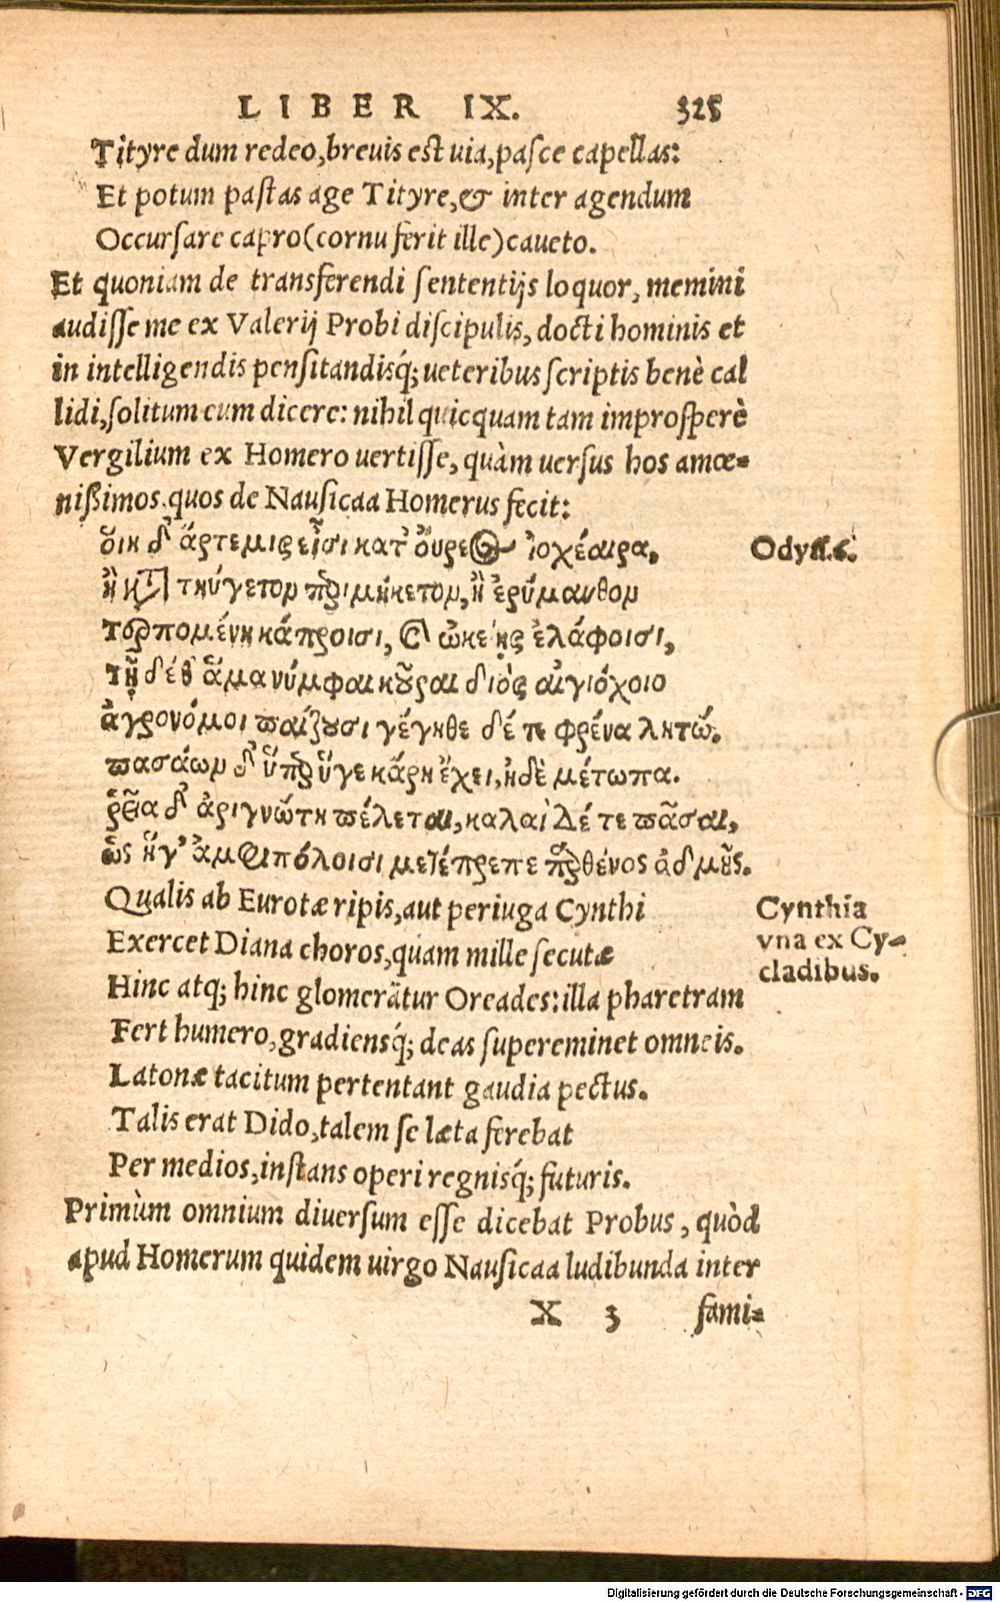 LIBER IX. 325
Tityre dum redeo, brevis est uia, pasce capellas:
Et potum pastas age Tityre, & inter agendum
Occursare capro (cornu ferit ille) caueto.
Et quoniam de transferendi sententijs loquor, memini
audisse me ex Valerij Probi discipulis, docti hominis et
in intelligendis pensitandisq́; ueteribus scriptis benè cal
lidi, solitum eum dicere: nihil quicquam tam improsperè
Vergilium ex Homero uertisse, quàm uersus hos amœ-
nißimos, quos de Nausicaa Homerus fecit:
ὅικ δ' ἄρτεμις εἶσι κατ' ὄυρεος ἰοχέαιρα,
Odyss. ϛ.
ἢ κατὰ τηΰγετον περιμήκετον, ἢ ἐρύμανθον
Τερπομένη κάπροισι, καὶ ὠκείῃς ἐλάφοισι,
Τῇ δέ θ' ἅμα νύμφαι κοῦραι διὸς αἰγιόχοιο
ἀγρονόμοι παίζουσι γέγηθε δέ τε φρένα λητώ.
πασάων δ' ὕπερ ἥγε κάρη ἔχει, ἠδὲ μέτωπα.
ῥεῖα δ' ἀριγνώτη πέλεται, καλαὶ Δέ τε πᾶσαι,
ὣς ἥγ' ἀμφιπόλοισι μετέπρεπε παρθένος ἀδμής.
Qualis ab Eurotæ ripis, aut per iuga Cynthi
Cynthia
vna ex Cy-
cladibus.
Exercet Diana choros, quam mille secutæ
Hinc atq; hinc glomerãtur Oreades: illa pharetram
Fert humero, gradiensq́; deas supereminet omneis.
Latonæ tacitum pertentant gaudia pectus.
Talis erat Dido, talem se læta ferebat
Per medios, instans operi regnisq́; futuris.
Primùm omnium diuersum esse dicebat Probus, quòd
apud Homerum quidem uirgo Nausicaa ludibunda inter
X 3 fami-
Digitalisierung gefördert durch die Deutsche Forschungsgemeinschaft - DFG